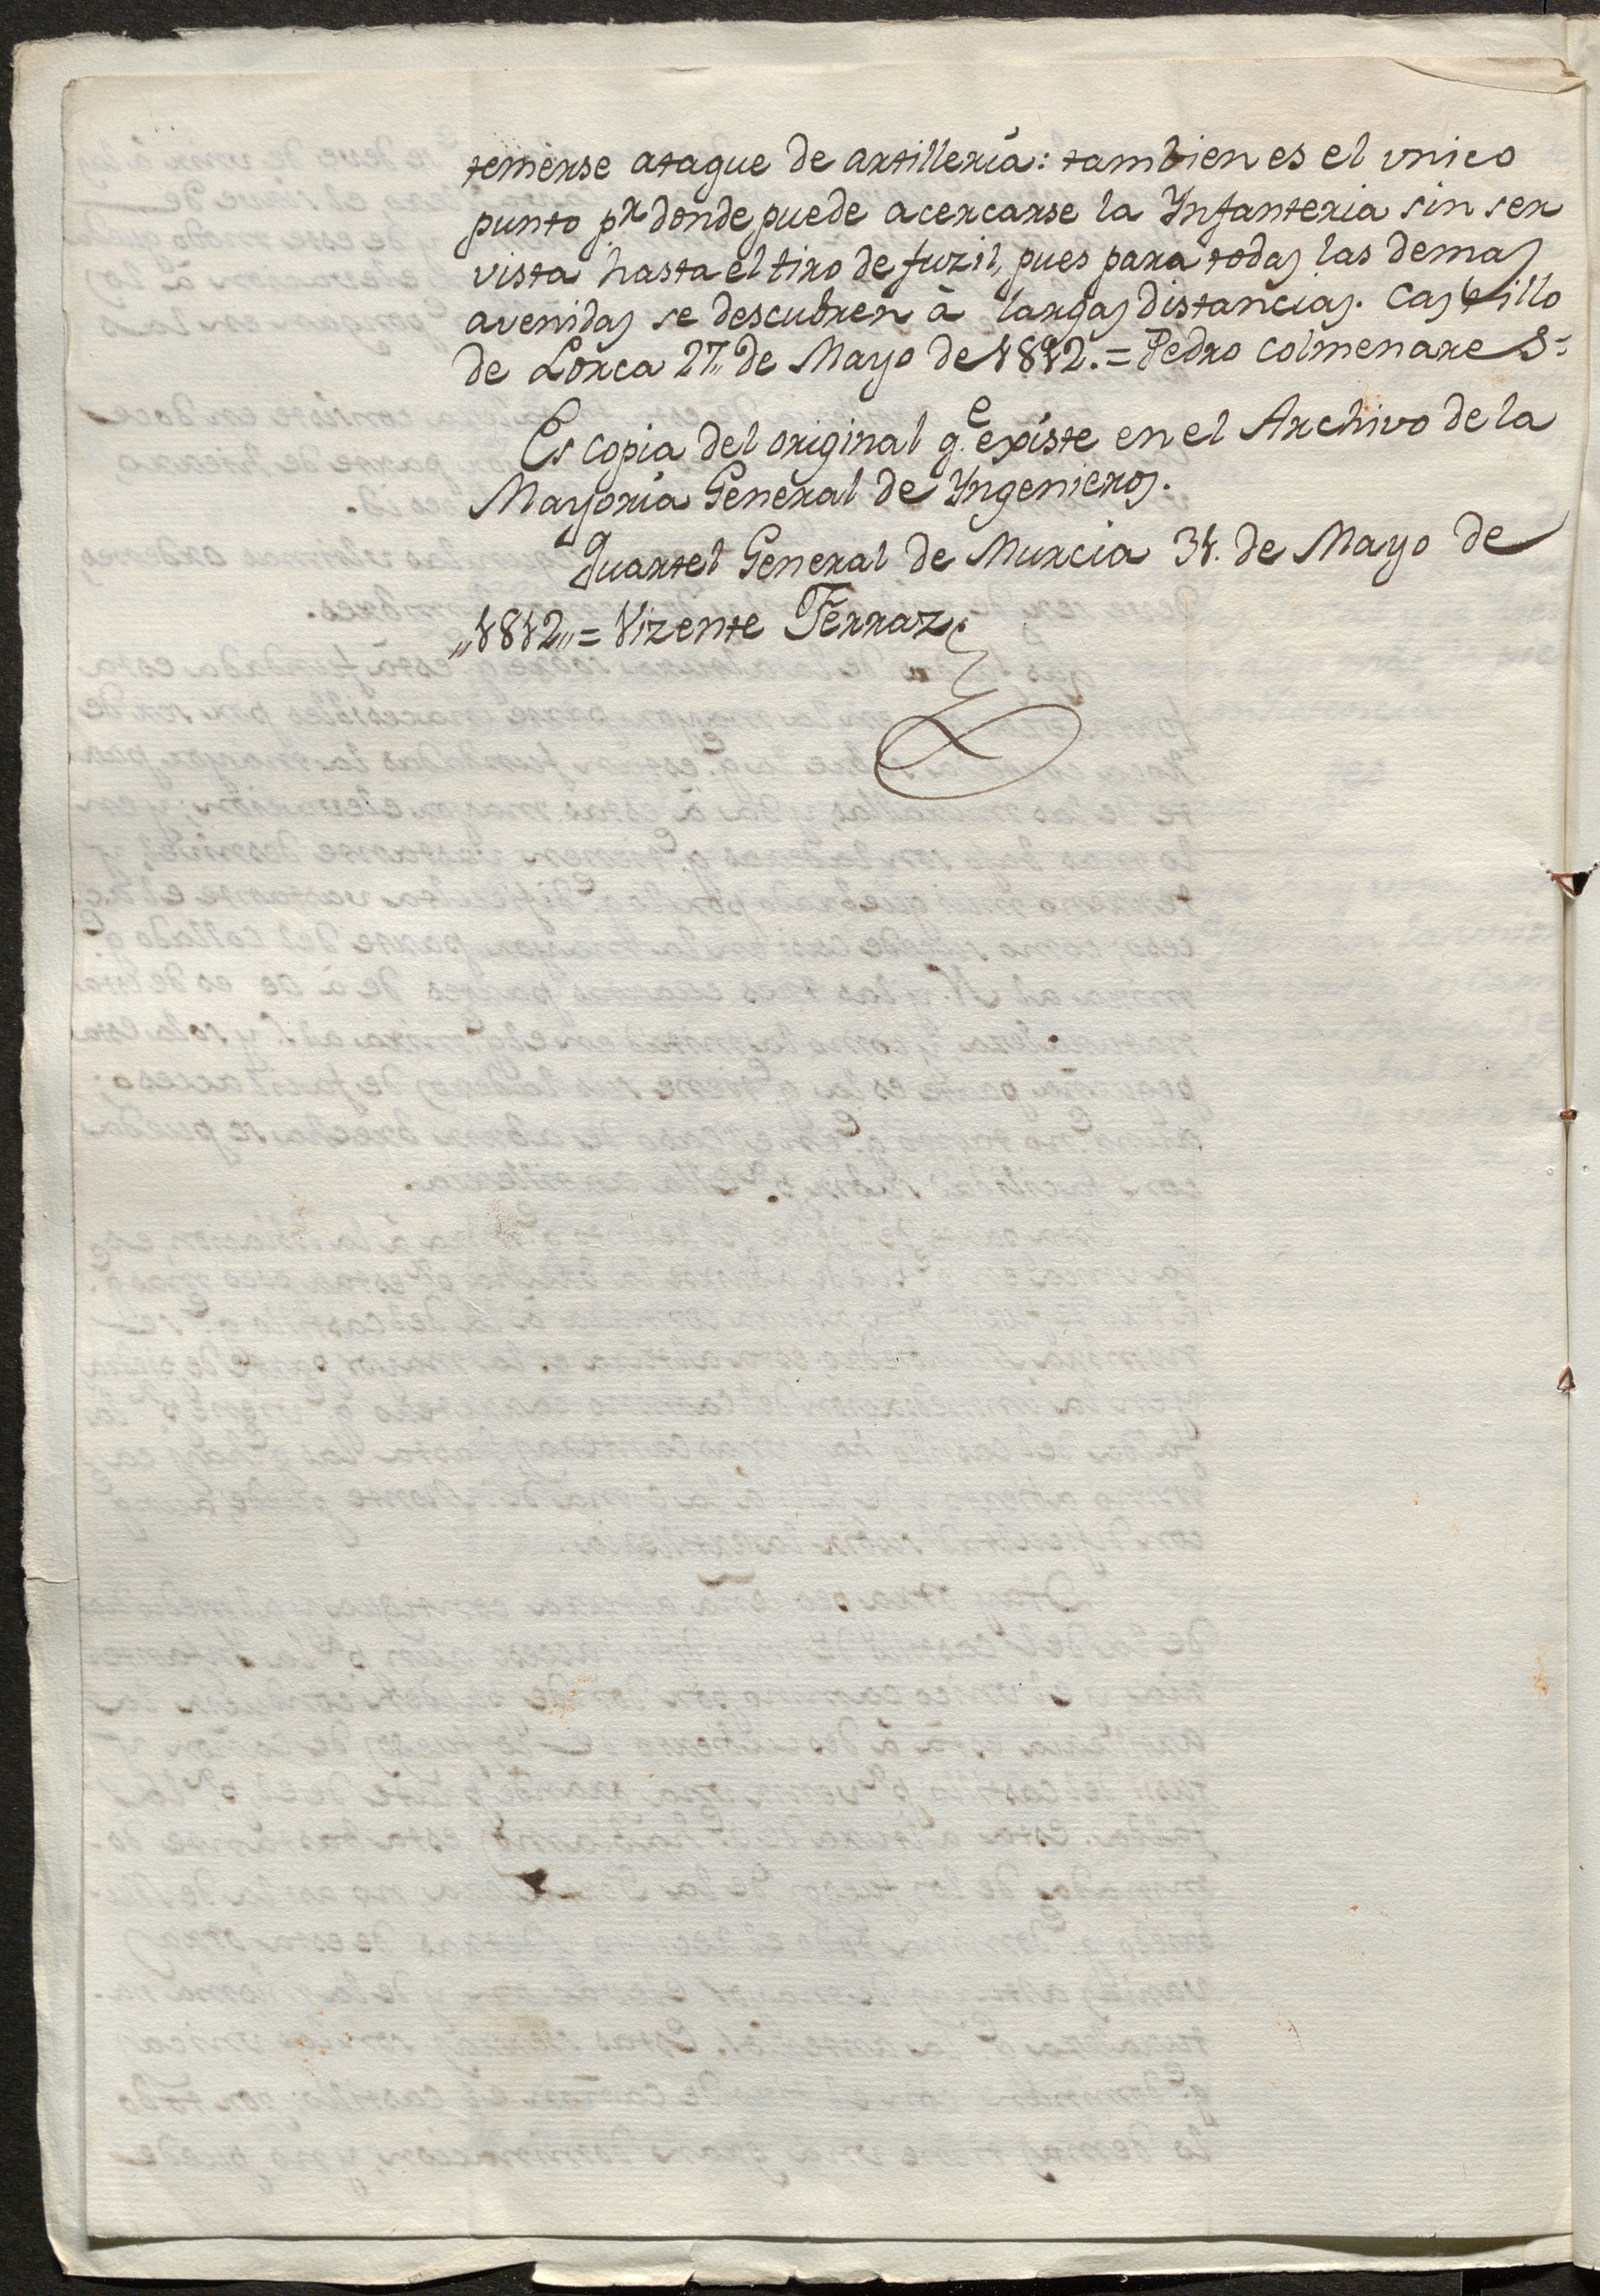 temerse ataque de artilleria: tambien es el vnico
punto pr. donde puede acercarse la Ynfanteria sin ser
vista hasta el tiro de fuzil, pues para todas las demas
avenidas se descubren à largas distancias. Castillo
de Lorca 27,, de Mayo de 1812. = Pedro Colmenares.
Es copia del original q.e existe en el Archivo de la
Mayoria General de Yngenieros.
Quartel General de Murcia 31. de Mayo de
,,1812,, = Vizente Ferraz